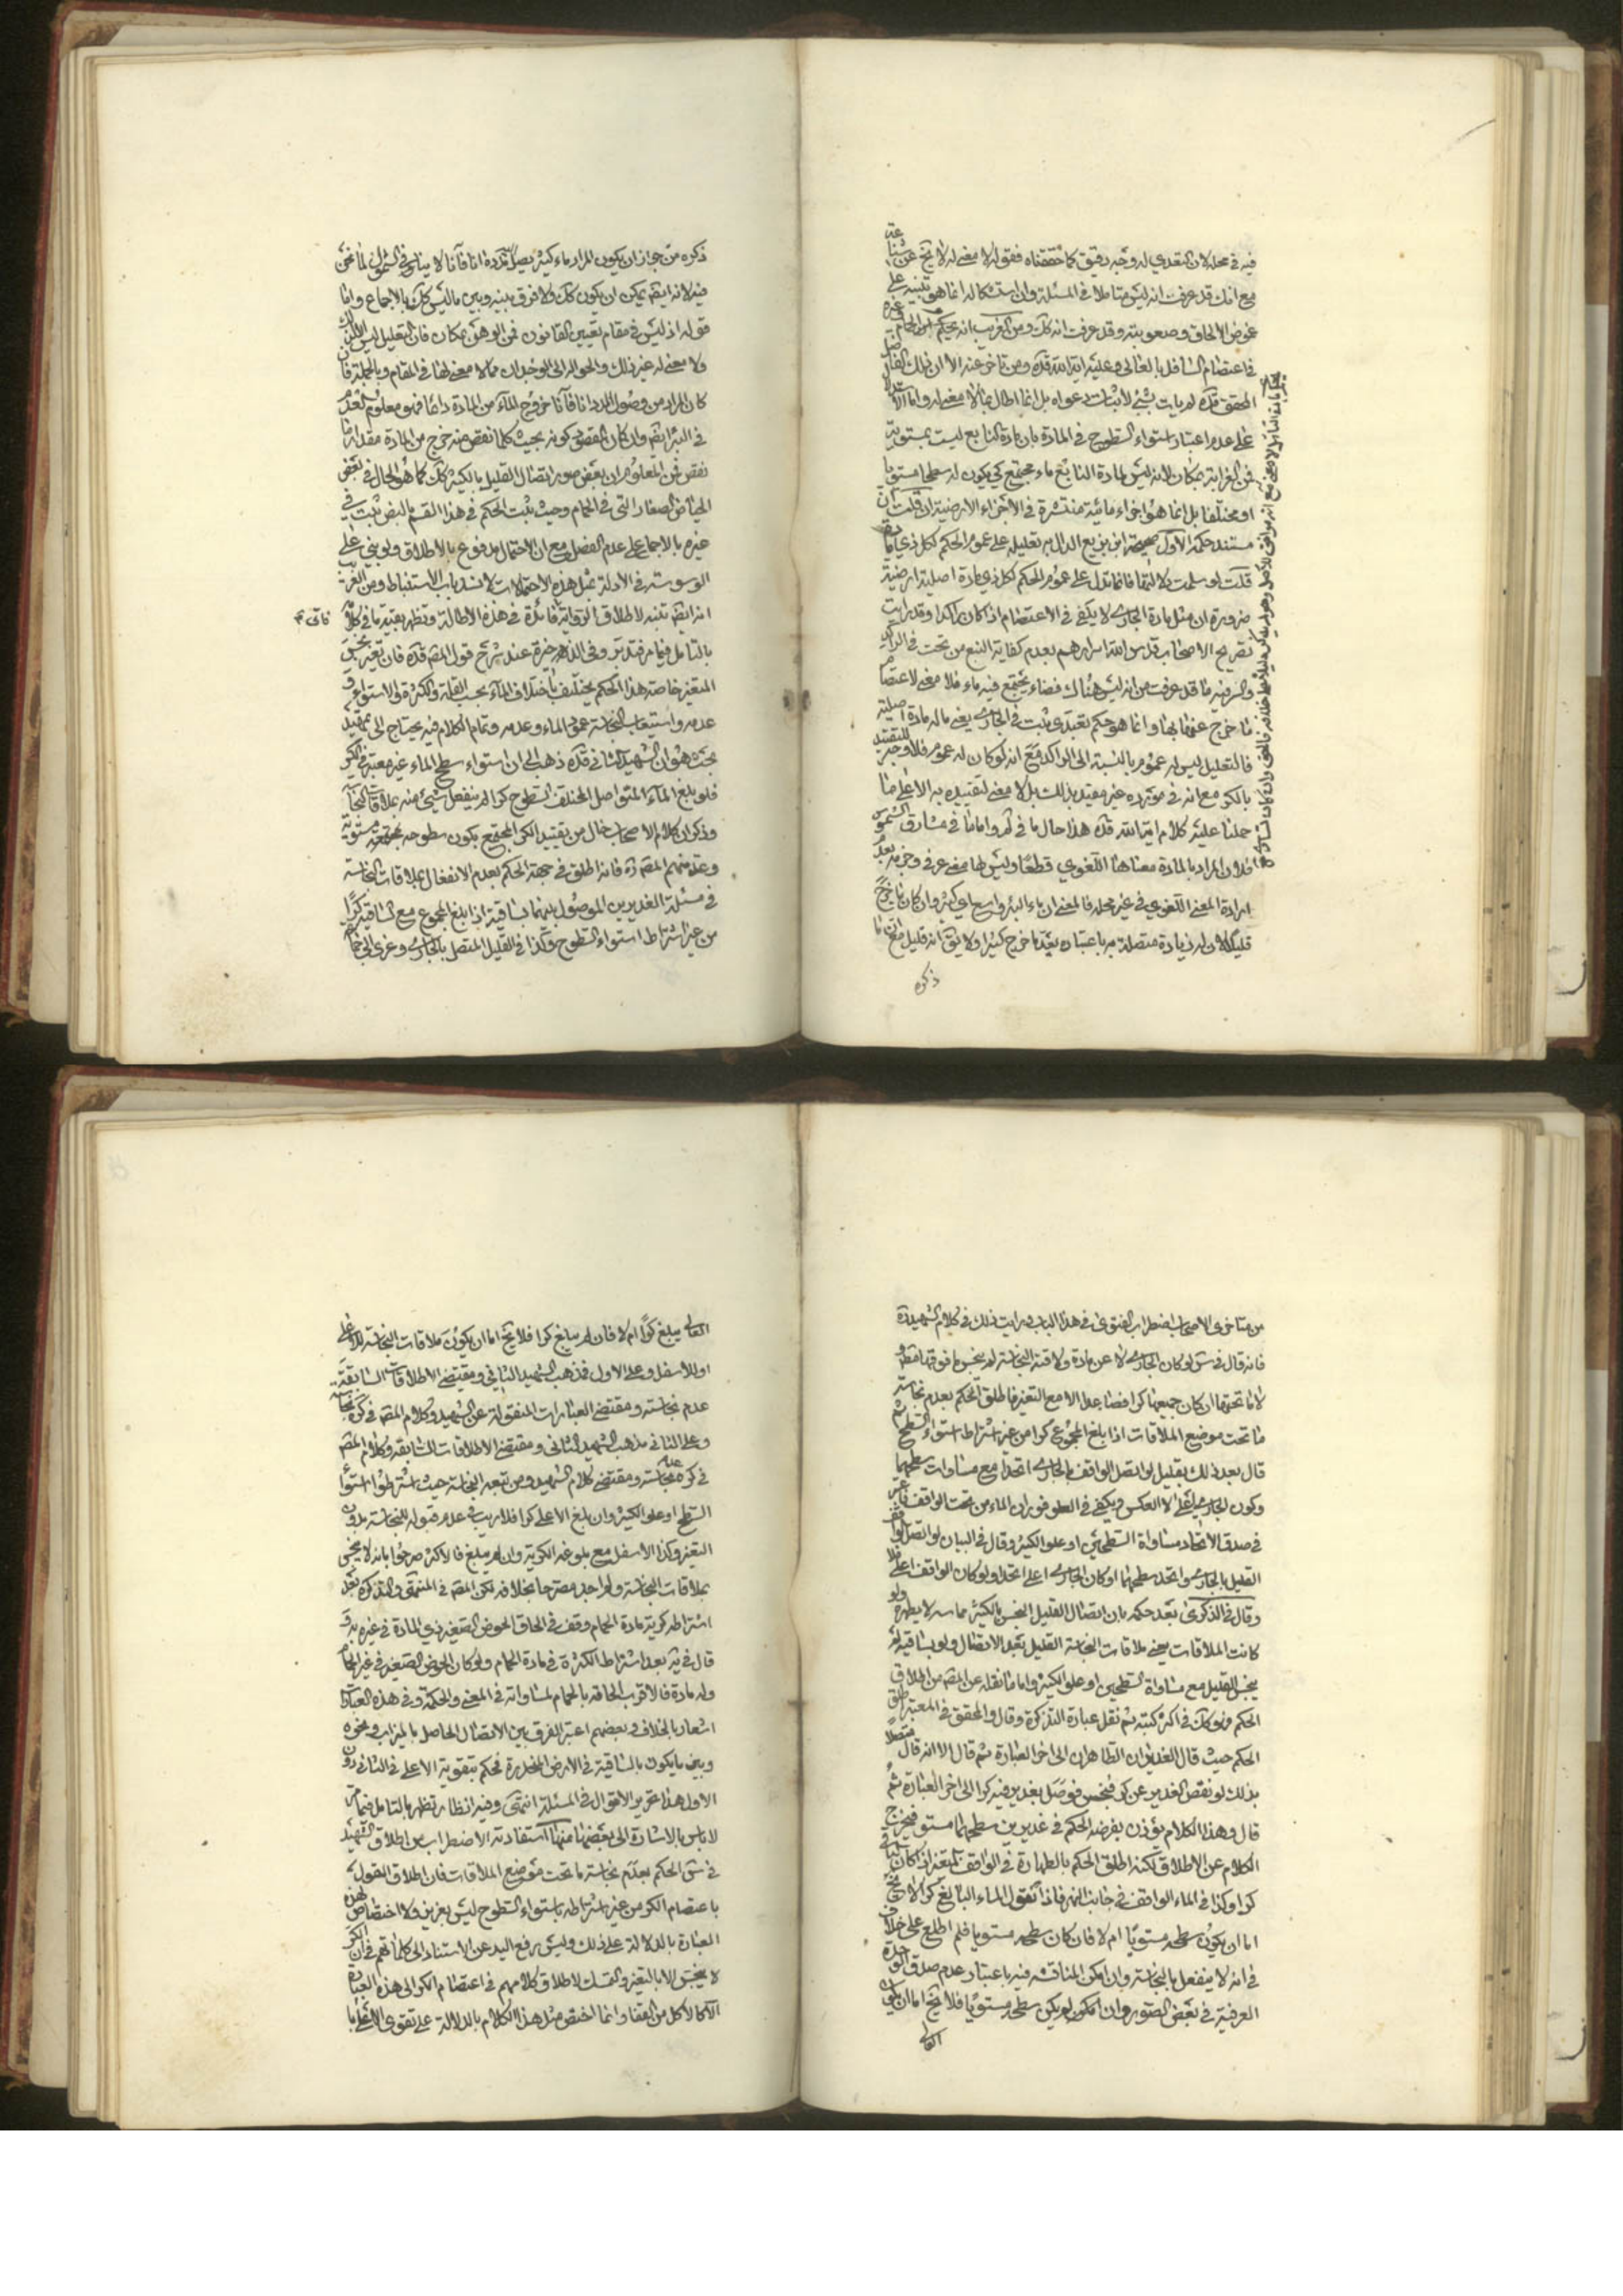 فيه في محله لان التعدي له وجه دقيق كما حققناه فقوله لا معنى له لا يخ عن
مع انك قد عرفت انه ليس متاملا في المسئلة وان استشكاله انما هو تنبيه على
غموض الالحاق وصعوبته وقد عرفت انه كك ومن الغريب انه يحكم
في اعتصام السافل بالعالي وعليه اية الله قده ومن تاخر عنه الا ان ذلك
المحقق قده لم يات بشيء لاثبات دعواه بل انما اطال بما لا معنى له واما
على عدم اعتبار استواء السطوح في المادة بان مادة النابع ليست بمستوية
فمن الغرابة بمكان لانه ليس لمادة النابع ماء مجتمع كي يكون له سطحا مستويا
او مختلفا بل انما هو اجزاء مائية منتشرة في الاجزاء الارضية ان قلت ان
مستند حكمه الاول صحيحة ابن بزيع الدال بتعليله على عموم الحكم لكل ذي مادة
قلت لو سلمت دلالتها فانما تدل على عموم الحكم لكل ذي مادة اصلية ارضية
ضرورة ان مثل مادة الجاري لا يكفي في الاعتصام اذا كان راكدا وقد رايت
تصريح الاصحاب قدس الله اسرارهم بعدم كفاية النبع من تحت في الراكد
والسر فيه ما قد عرفت من انه ليس هناك فضاء يجتمع فيه ماء فلا معنى لاعتصام
ما خرج عنها بها وانما هو حكم تعبدي ثبت في الجاري يعني ما له مادة اصلية
فالتعليل ليس له عموم بالنسبة الى الراكد مع انه لو كان له عموم فلا وجه للتقييد
بالكر مع انه في مورده غير مقيد بذلك بل لا معنى لتقييده به الا على ما
حملنا عليه كلام اية الله قده هذا حال ما في لم واما ما في مشارق الشموس
فلان المراد بالمادة معناها اللغوي قطعا وليس لها معنى عرفي وجزمه بعدم
ارادة المعنى اللغوي في غير محله فالمعنى ان ماء البئر واسع اي كثير وان كان ما خرج
قليلا لان له زيادة متصلة به باعتباره بعد ما خرج كثيرا ولا يق انه قليل مع ان ما
ذكره
ذكره من جواز ان يكون المراد ماء كثير يصل مدده انا فانا لا ينافي الشمول لما نحن
فيه لانه ايضا يمكن ان يكون كك ولا فرق بينه وبين ما ليس كك بالاجماع واما
قوله اذ ليس في مقام تعيين القانون فمن الوهن بمكان فان التعليل ليس الا
ولا معنى له غير ذلك والحوالة الى الوجدان مما لا معنى لها في المقام وبالجملة فان
كان المراد من وصول المدد انا فانا خروج الماء من المادة دائما فهو معلوم العدم
في البئر ايضا وان كان المقصود كونه بحيث كلما نقص منه خرج من المادة مقدار ما
نقص فمن المعلوم ان بعض صور اتصال القليل بالكثير كك كما هو الحال في بعض
الحياض الصغار التي في الحمام وحيث ثبت الحكم في هذا القسم بالنص ثبت في
غيره بالاجماع على عدم الفصل مع ان الاحتمال مدفوع بالاطلاق ولو بني على
الوسوسة في الادلة بمثل هذه الاحتمالات لانسد باب الاستنباط ومن الغريب
انه ايضا تنبه لاطلاق الرواية فاي فائدة في هذه الاطالة وتظهر بقية ما في كلامه
بالتامل فيما مر فتدبر وفي الذخيرة عند شرح قول المص قده فان تغير بعضه نجس
المتغير خاصة هذا الحكم يختلف باختلاف الماء بحسب القلة والكثرة والاستواء و
عدمه واستيعاب النجاسة عمود الماء وعدمه وتمام الكلام فيه يحتاج الى تمهيد
بحث هو ان الشهيد الثاني قده ذهب الى ان استواء سطح الماء غير معتبر في الكر
فلو بلغ الماء المتواصل المختلف السطوح كرا لم ينفعل شيء منه بملاقات النجاسة
وذكر ان كلام الاصحاب خال من تقييد الكر المجتمع بكون سطوحه مستوية
وعد منهم المص ره فانه اطلق في جهة الحكم بعدم الانفعال بملاقات النجاسة
في مسئلة الغديرين الموصول بينهما بساقية اذا بلغ المجموع مع الساقية كرا
من غير اشتراط استواء السطوح وكذا في القليل المتصل بالجاري وعزى الى جماعة
من متاخري الاصحاب اضطراب الفتوى في هذا الباب ورايت ذلك في كلام الشهيد ره
فانه قال في س لو كان الجاري لا عن مادة ولاقته النجاسة لم ينجس ما فوقها مطلقا و
لا ما تحتها ان كان جميعها كرا فصاعدا الا مع التغير فاطلق الحكم بعدم نجاسة
ما تحت موضع الملاقات اذا بلغ المجموع كرا من غير اشتراط استواء السطح ثم
قال بعد ذلك بقليل لو اتصل الواقف بالجاري اتحدا مع مساوات سطحيهما
وكون الجاري اعلى لا العكس ويكفي في العلو فوران الماء من تحت الواقف فاعتبر
في صدق الاتحاد مساواة السطحين او علو الكثير وقال في البيان لو اتصل الواقف
القليل بالجاري واتحد سطحهما او كان الجاري اعلى اتحدا ولو كان الواقف اعلى فلا
وقال في الذكرى بعد حكمه بان اتصال القليل النجس بالكثير مماسة لا يطهره ولو
كانت الملاقات يعني ملاقات النجاسة القليل بعد الاتصال ولو بساقية لم
ينجس القليل مع مساواة السطحين او علو الكثير واما ما نقله عن المص من اطلاق
الحكم فهو كك في اكثر كتبه ثم نقل عبارة التذكرة وقال والمحقق في المعتبر اطلق
الحكم حيث قال الغديران الطاهران الى اخر العبارة ثم قال الا انه قال متصلا
بذلك لو نقص الغدير عن كر فنجس فوصل بغدير فيه كر الى اخر العبارة ثم
قال وهذا الكلام يؤذن بفرضه الحكم في غديرين سطحهما مستو فيخرج
الكلام عن الاطلاق لكنه اطلق الحكم بالطهارة في الواقف المتغير اذا كان الباقي
كرا وكذا في الماء الواقف في جانب النهر فاذا نقول الماء البالغ كرا لا يخ
اما ان يكون سطحه مستويا ام لا فان كان سطحه مستويا فلم اطلع على خلاف
في انه لا ينفعل بالنجاسة وان امكن المناقشة فيه باعتبار عدم صدق الوحدة
العرفية في بعض الصور وان لم يكن سطحه مستويا فلا يخ اما ان يكون
العالي
العالي يبلغ كرا ام لا فان لم يبلغ كرا فلا يخ اما ان يكون ملاقات النجاسة للاعلى
او للاسفل وعلى الاول فمذهب الشهيد الثاني ومقتضى الاطلاقات السابقة
عدم نجاسته ومقتضى العبارات المنقولة عن الشهيد وكلام المص في كره نجاسته
وعلى الثاني مذهب الشهيد الثاني ومقتضى الاطلاقات السابقة وكلام المص
في كره عدم نجاسته ومقتضى كلام الشهيد ومن تبعه النجاسة حيث اشترطوا استواء
السطح او علو الكثير وان بلغ الاعلى كرا فلا ريب في عدم قبوله للنجاسة بدون
التغير وكذا الاسفل مع بلوغه الكرية وان لم يبلغ فالاكثر صرحوا بانه لا ينجس
بملاقات النجاسة ولم اجد مصرحا بخلافه لكن المص في المنتهى والتذكرة بعد
اشتراطه كرية مادة الحمام وقف في الحاق الحوض الصغير ذي المادة في غيره به
قال في يه بعد اشتراط الكثرة في مادة الحمام ولو كان الحوض الصغير في غير الحمام
وله مادة فالاقرب الحاقه بالحمام لمساواته في المعنى والحكمة وفي هذه العبارة
اشعار بالخلاف وبعضهم اعتبر الفرق بين الاتصال الحاصل بالميزاب ونحوه
وبين ما يكون بالساقية في الارض المنحدرة فحكم بتقوية الاعلى في الثاني دون
الاول هذا تحرير الاقوال في المسئلة انتهى وفيه انظار تظهر بالتامل فيما مر
لا باس بالاشارة الى بعضها منها استفادته الاضطراب من اطلاق الشهيد
في س الحكم بعدم نجاسة ما تحت موضع الملاقات فان اطلاق القول
باعتصام الكر من غير اشتراطه باستواء السطوح ليس بعزيز ولا اختصاص لهذه
العبارة بالدلالة على ذلك وليس رفع اليد عن الاستناد الى كلماتهم في ان الكر
لا ينجس الا بالتغير والتمسك لاطلاق كلامهم في اعتصام الكر الى هذه العبارة
الا كالاكل من القفا وانما اختص مثل هذا الكلام بالدلالة على تقوي الاعلى